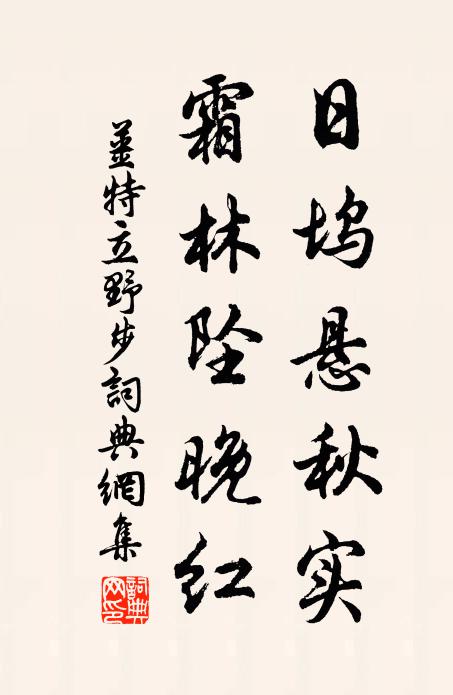 日坞悬秋实
霜林坠晚红
姜特立野步詞典網集
詞典網印